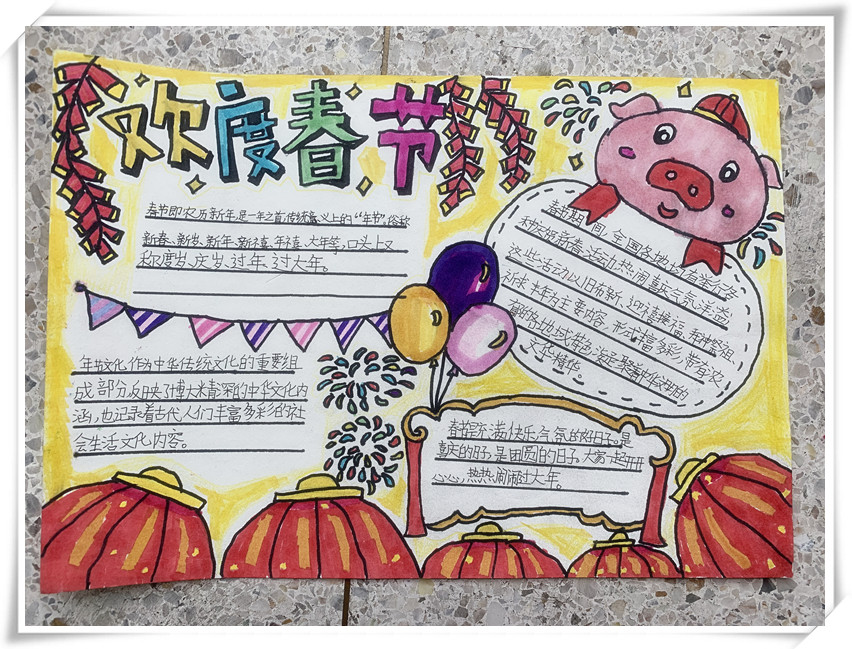 欢度春节
春节即农历新年,是一年之首,传统意义上的“年节”,俗称
新春、新岁、新年、新禧、年禧、大年等,口头上又
称度岁、庆岁、过年、过大年。
春节期间,全国各地均有举行各
种庆贺新春活动,热闹喜庆气氛洋溢,
这些活动以旧布新、迎禧接福、拜神祭祖、
祈求丰年为主要内容,形式丰富多彩,带有浓
郁的各地域特色,凝聚着中华文明的
文华精华。
年节文化作为中华传统文化的重要组
成部分,反映了博大精深的中华文化内
涵,也记录着古代人们丰富多彩的社
会生活文化内容。
春节是充满快乐气氛的好日子,是
喜庆的日子,是团圆的日子。大家一起开开
心心,热热闹闹过大年。